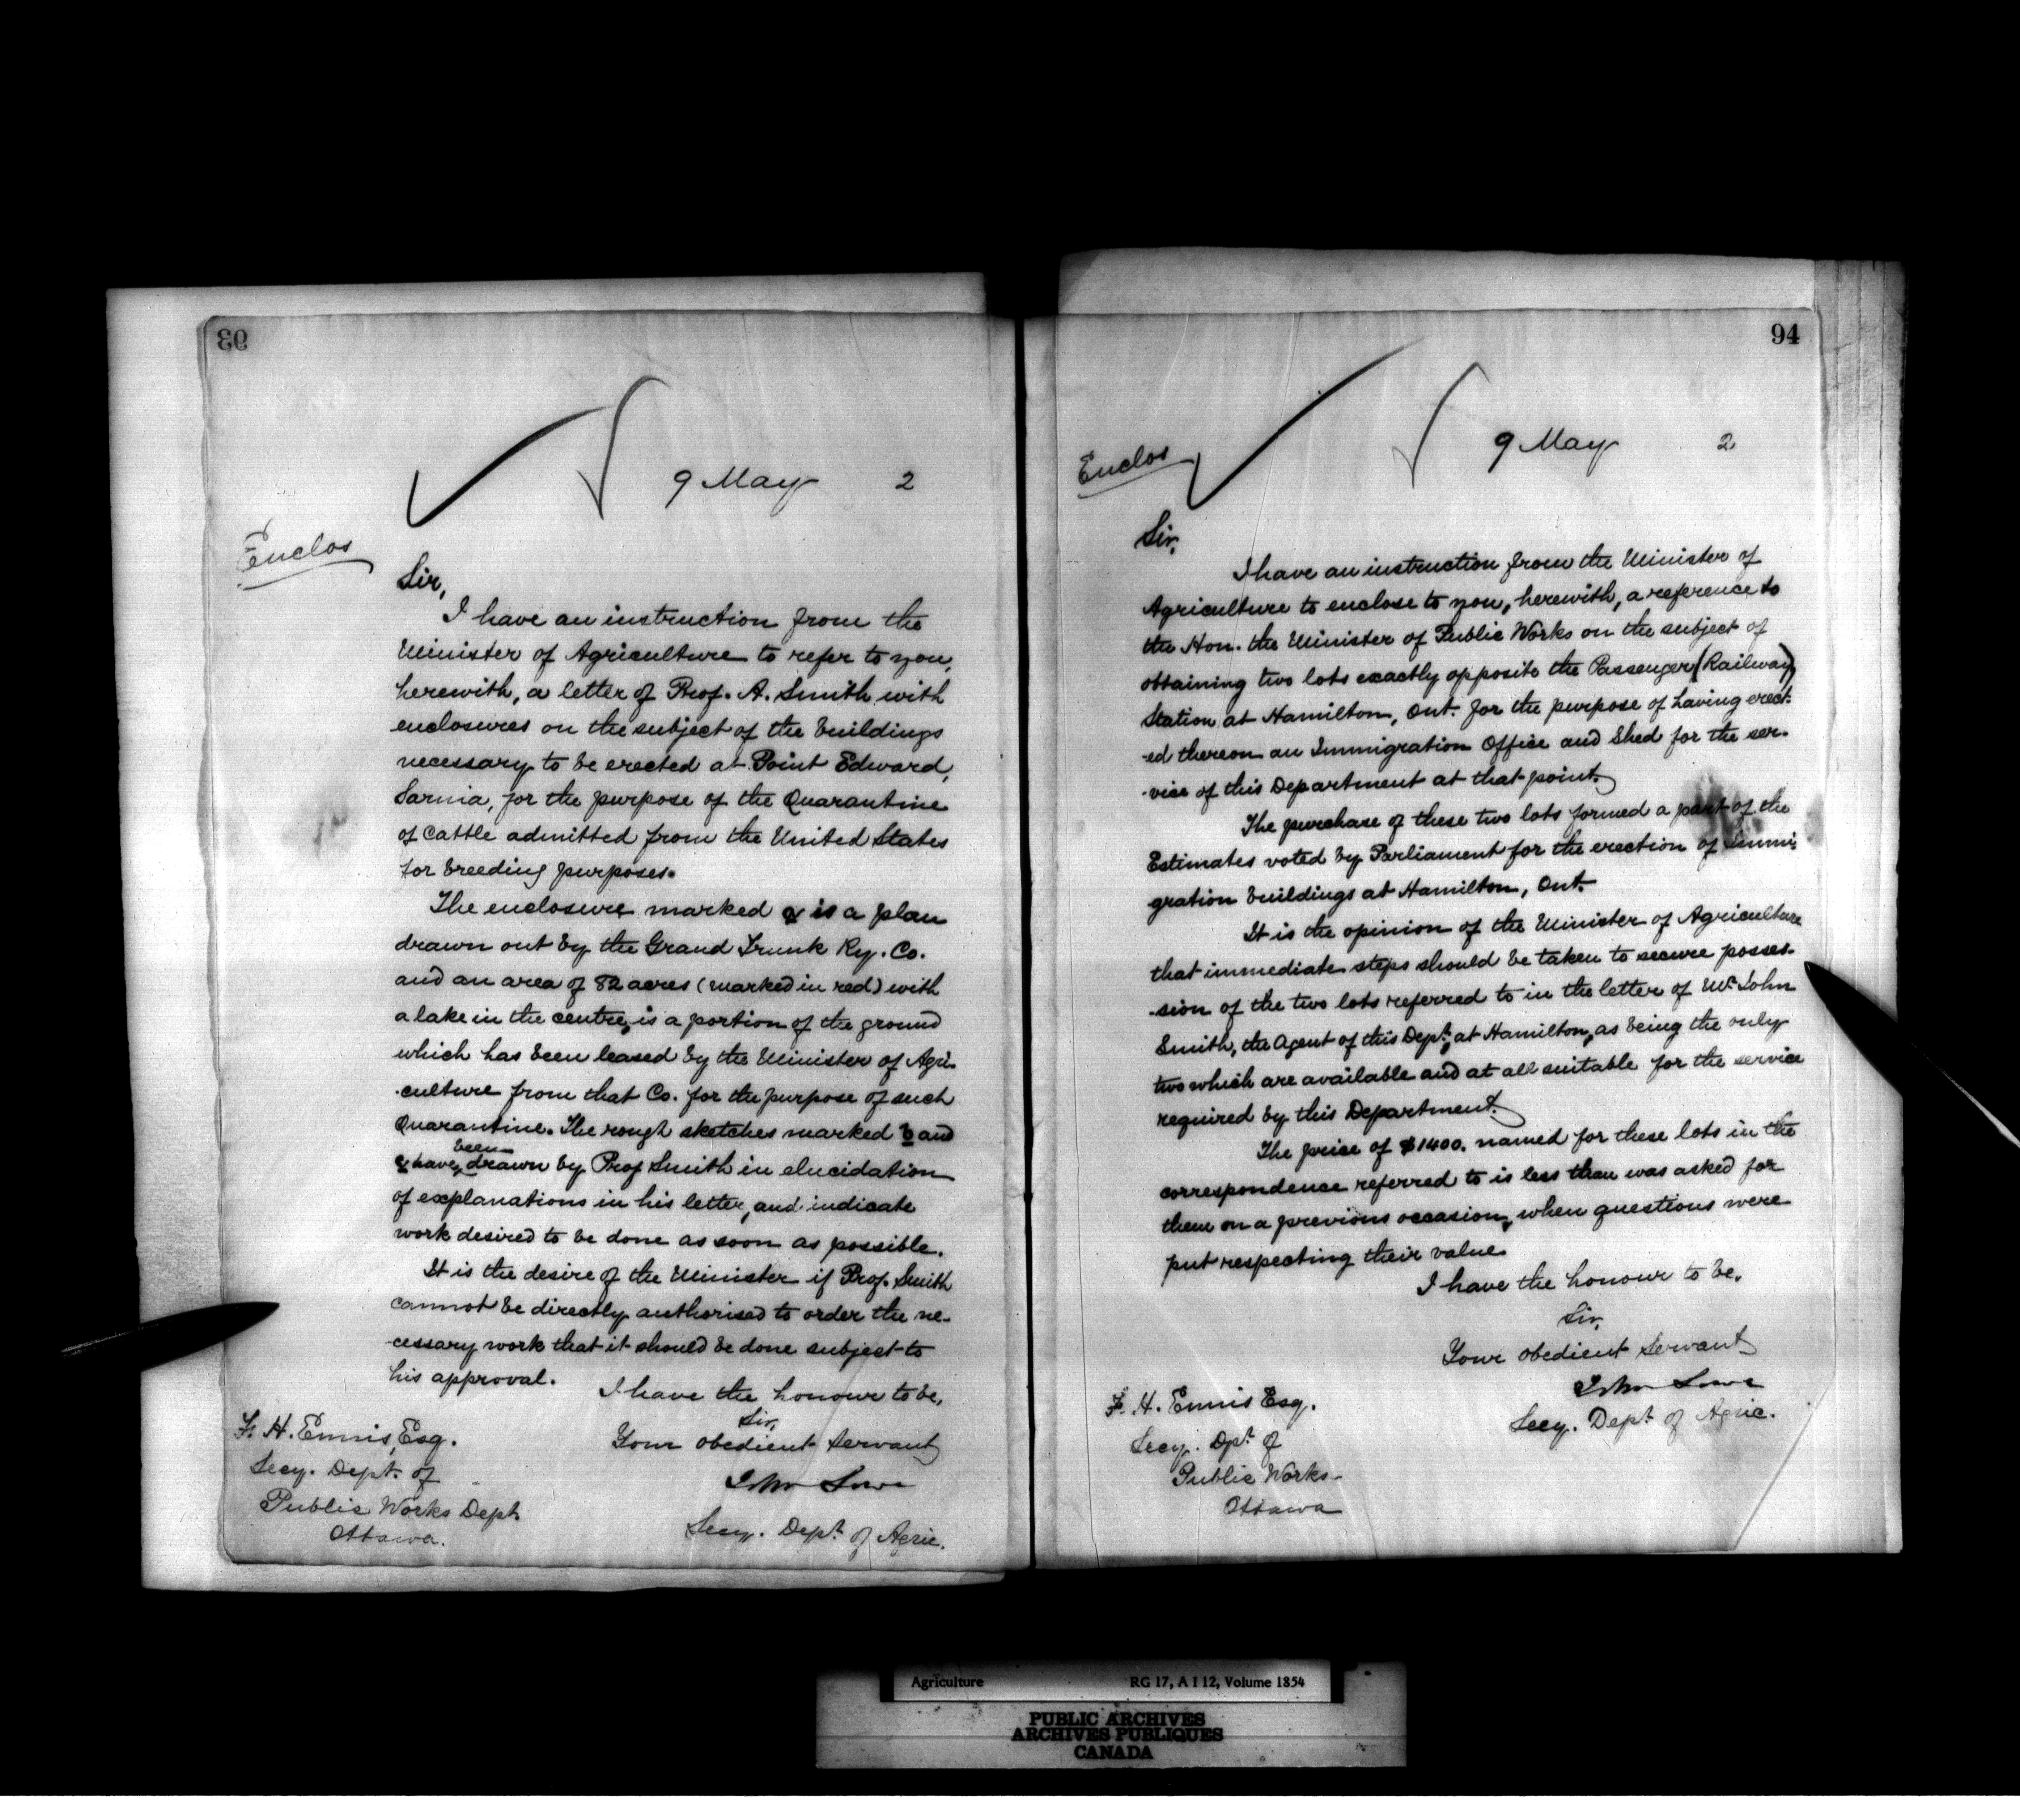 93
9 May 2
Enclos
Sir,
I have an instruction from the
Minister of Agriculture to refer to you,
herewith, a letter of Prof. A. Smith with
enclosures on the subject of the buildings
necessary to be erected at Point Edward,
Sarnia, for the purpose of the Quarantine
of Cattle admitted from the United States
for breeding purposes.
The enclosure marked a is a plan
drawn out by the Grand Trunk Ry. Co.
and an area of 82 acres (marked in red) with
a lake in the centre, is a portion of the ground
which has been leased by the Minister of Agri-
-culture from that Co. for the purpose of such
Quarantine. The rough sketches marked b and
been
c have drawn by Prof Smith in elucidation
of explanations in his letter, and indicate
work desired to be done as soon as possible.
It is the desire of the Minister if Prof. Smith
cannot be directly authorised to order the ne-
-cessary work that it should be done subject to
his approval.
I have the honour to be,
Sir,
Your obedient servant
John Lowe
Secy. Dept. of Agric.
F. H. Ennis, Esq.
Secy. Dept. of
Public Works Dept.
Ottawa.
94
9 May 2
Enclos
Sir,
I have an instruction from the Minister of
Agriculture to enclose to you, herewith, a reference to
the Hon. the Minister of Public Works on the subject of
obtaining two lots exactly opposite the Passenger (Railway)
Station at Hamilton, Ont. for the purpose of having erect-
-ed thereon an Immigration Office and Shed for the ser-
-vice of this Department at that point.
The purchase of these two lots formed a part of the
Estimates voted by Parliament for the erection of Immi-
gration buildings at Hamilton, Ont.
It is the opinion of the Minister of Agriculture
that immediate steps should be taken to secure posses-
-sion of the two lots referred to in the letter of Mr. John
Smith, the Agent of this Dept., at Hamilton, as being the only
two which are available and at all suitable for the service
required by this Department.
The price of $1400. named for these lots in the
correspondence referred to is less than was asked for
them on a previous occasion, when questions were
put respecting their value.
I have the honour to be,
Sir,
Your obedient Servant
John Lowe
Secy. Dept. of Agric.
F. H. Ennis Esq.
Secy. Dpt. of
Public Works
Ottawa
Agriculture RG 17, A I 12, Volume 1854
PUBLIC ARCHIVES
ARCHIVES PUBLIQUES
CANADA